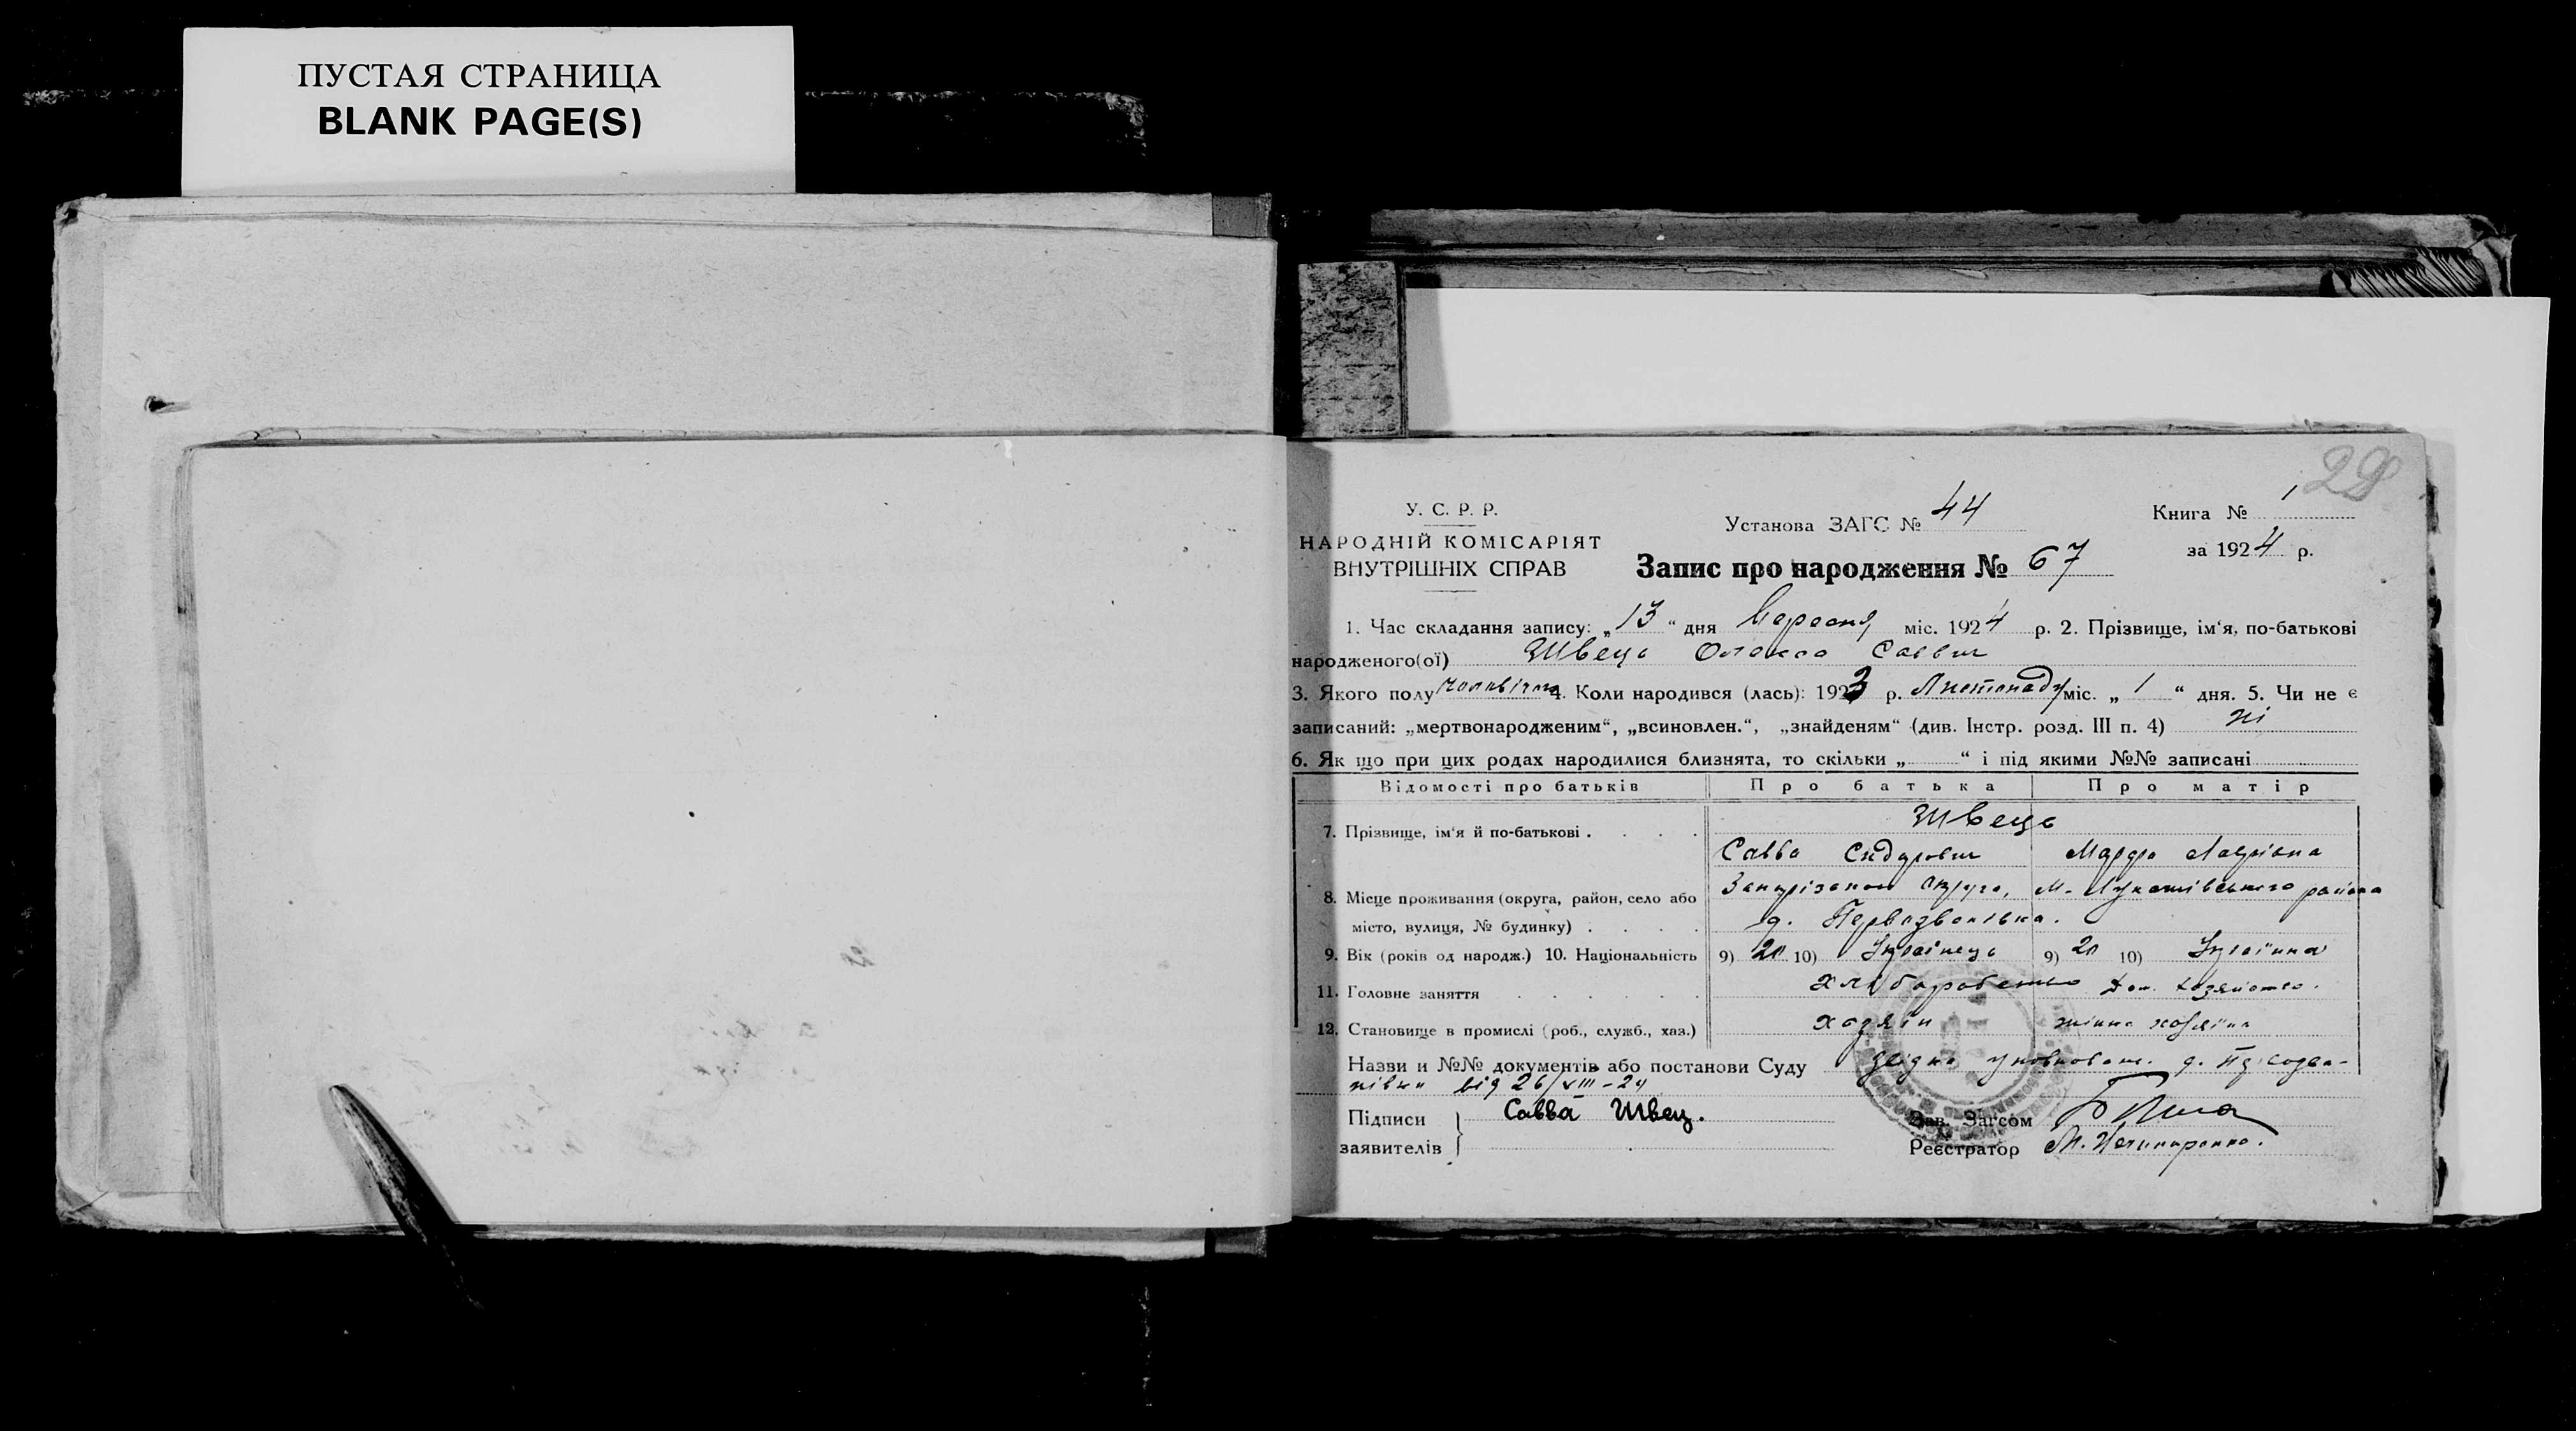 ПУСТАЯ СТРАНИЦА
BLANK PAGE(S)
29
У. С. Р. Р.
НАРОДНІЙ КОМІСАРІЯТ
ВНУТРІШНІХ СПРАВ
Установа ЗАГС № 44
Книга № 1
за 1924 р.
Запис про народження № 67
1. Час складання запису: „13“ дня Вересня міс. 1924 р. 2. Прізвище, ім‘я, по-батькові
народженого(ої) Швець Олекса Саввич
3. Якого полу чоловічого 4. Коли народився (лась): 1923 р. Листопаду міс. „1“ дня. 5. Чи не є
записаний: „мертвонародженим“, „всиновлен.“, „знайденям“ (див. Інстр. розд. III п. 4) ні
6. Як що при цих родах народилися близнята, то скільки „ “ і під якими №№ записані
Відомості про батьків Про батька Про матір
7. Прізвище, ім‘я й по-батькові . . . . Швець
Савва Сидорович Марфа
8. Місце проживання (округа, район, село або Запорізької округи, М-Лукашівського района
місто, вулиця, № будинку) . . . . д. Первозванівка.
9. Вік (років од народж.) 10. Національність 9) 20 10) Українець 9) 20 10) Українка
11. Головне заняття . . . . . . Хліборобство Дом. хозяйство.
12. Становище в промислі (роб., служб., хаз.) хозяїн жінка хозяїна
Назви и №№ документів або постанови Суду д.
від 26/VIII-24
Підписи Савва Швец.
заявителів
Зав. Загсом
Реєстратор